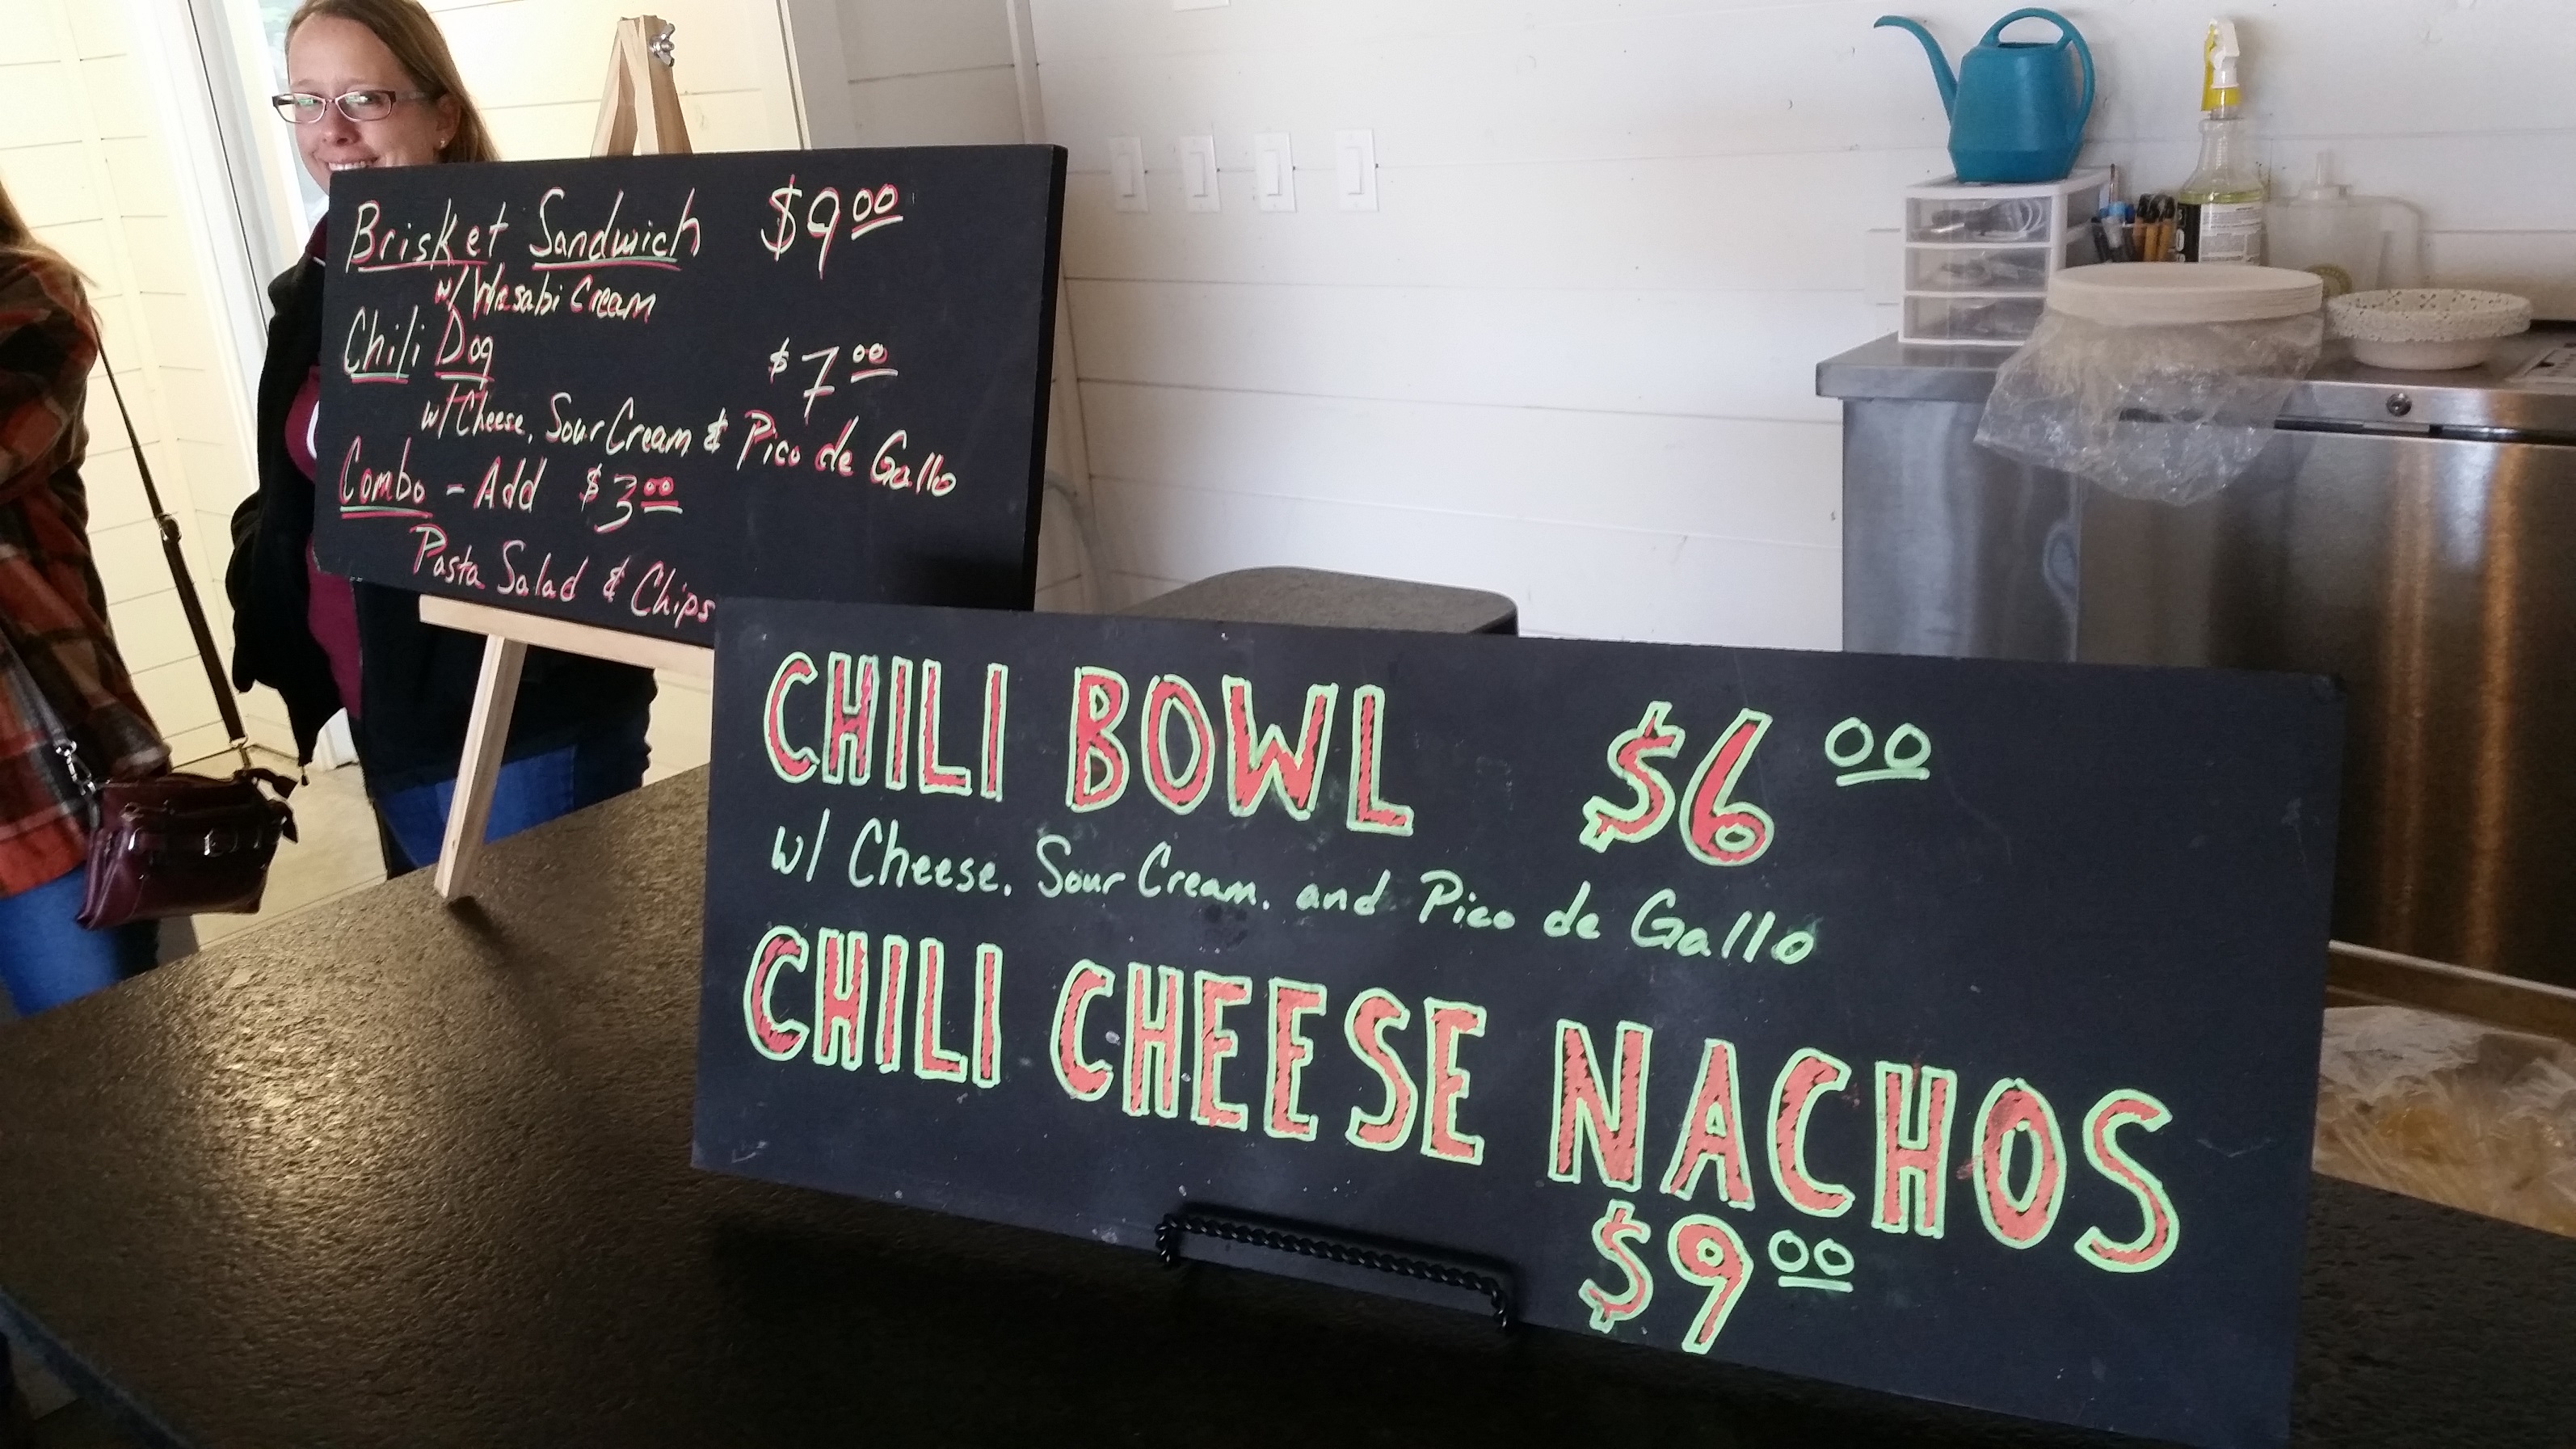 Brisket Sandwich $9.00
w/ Wasabi Cream
Chili Dog $7.00
w/ Cheese, Sour Cream & Pico de Gallo
Combo - Add $3.00
Pasta Salad & Chips
CHILI BOWL $6.00
w/ Cheese, Sour Cream, and Pico de Gallo
CHILI CHEESE NACHOS
$9.00